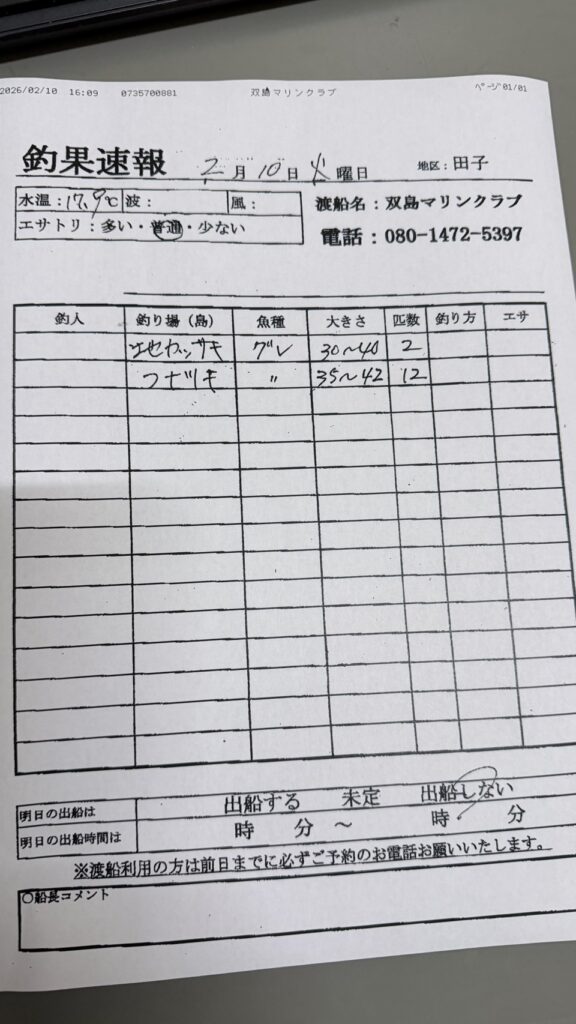 2026/02/10 16:09 0735700881 双島マリンクラブ ページ 01/01
釣果速報 2月10日火曜日 地区：田子
水温：17.9℃ 波： 風：
エサトリ：多い・普通・少ない
渡船名：双島マリンクラブ
電話：080-1472-5397
釣人 釣り場（島） 魚種 大きさ 匹数 釣り方 エサ
グレ 30〜40 2
フナヅキ 〃 35〜42 12
明日の出船は 出船する 未定 出船しない
明日の出船時間は 時 分 〜 時 分
※渡船利用の方は前日までに必ずご予約のお電話お願いいたします。
○船長コメント